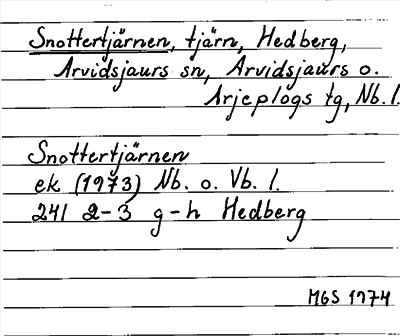 Snottertjärnen, tjärn, Hedberg,
Arvidsjaurs sn, Arvidsjaurs o.
Arjeplogs tg, Nb. l.
Snottertjärnen
ek (1973) Nb. o. Vb. l.
241 2-3 g-h Hedberg
MGS 1974